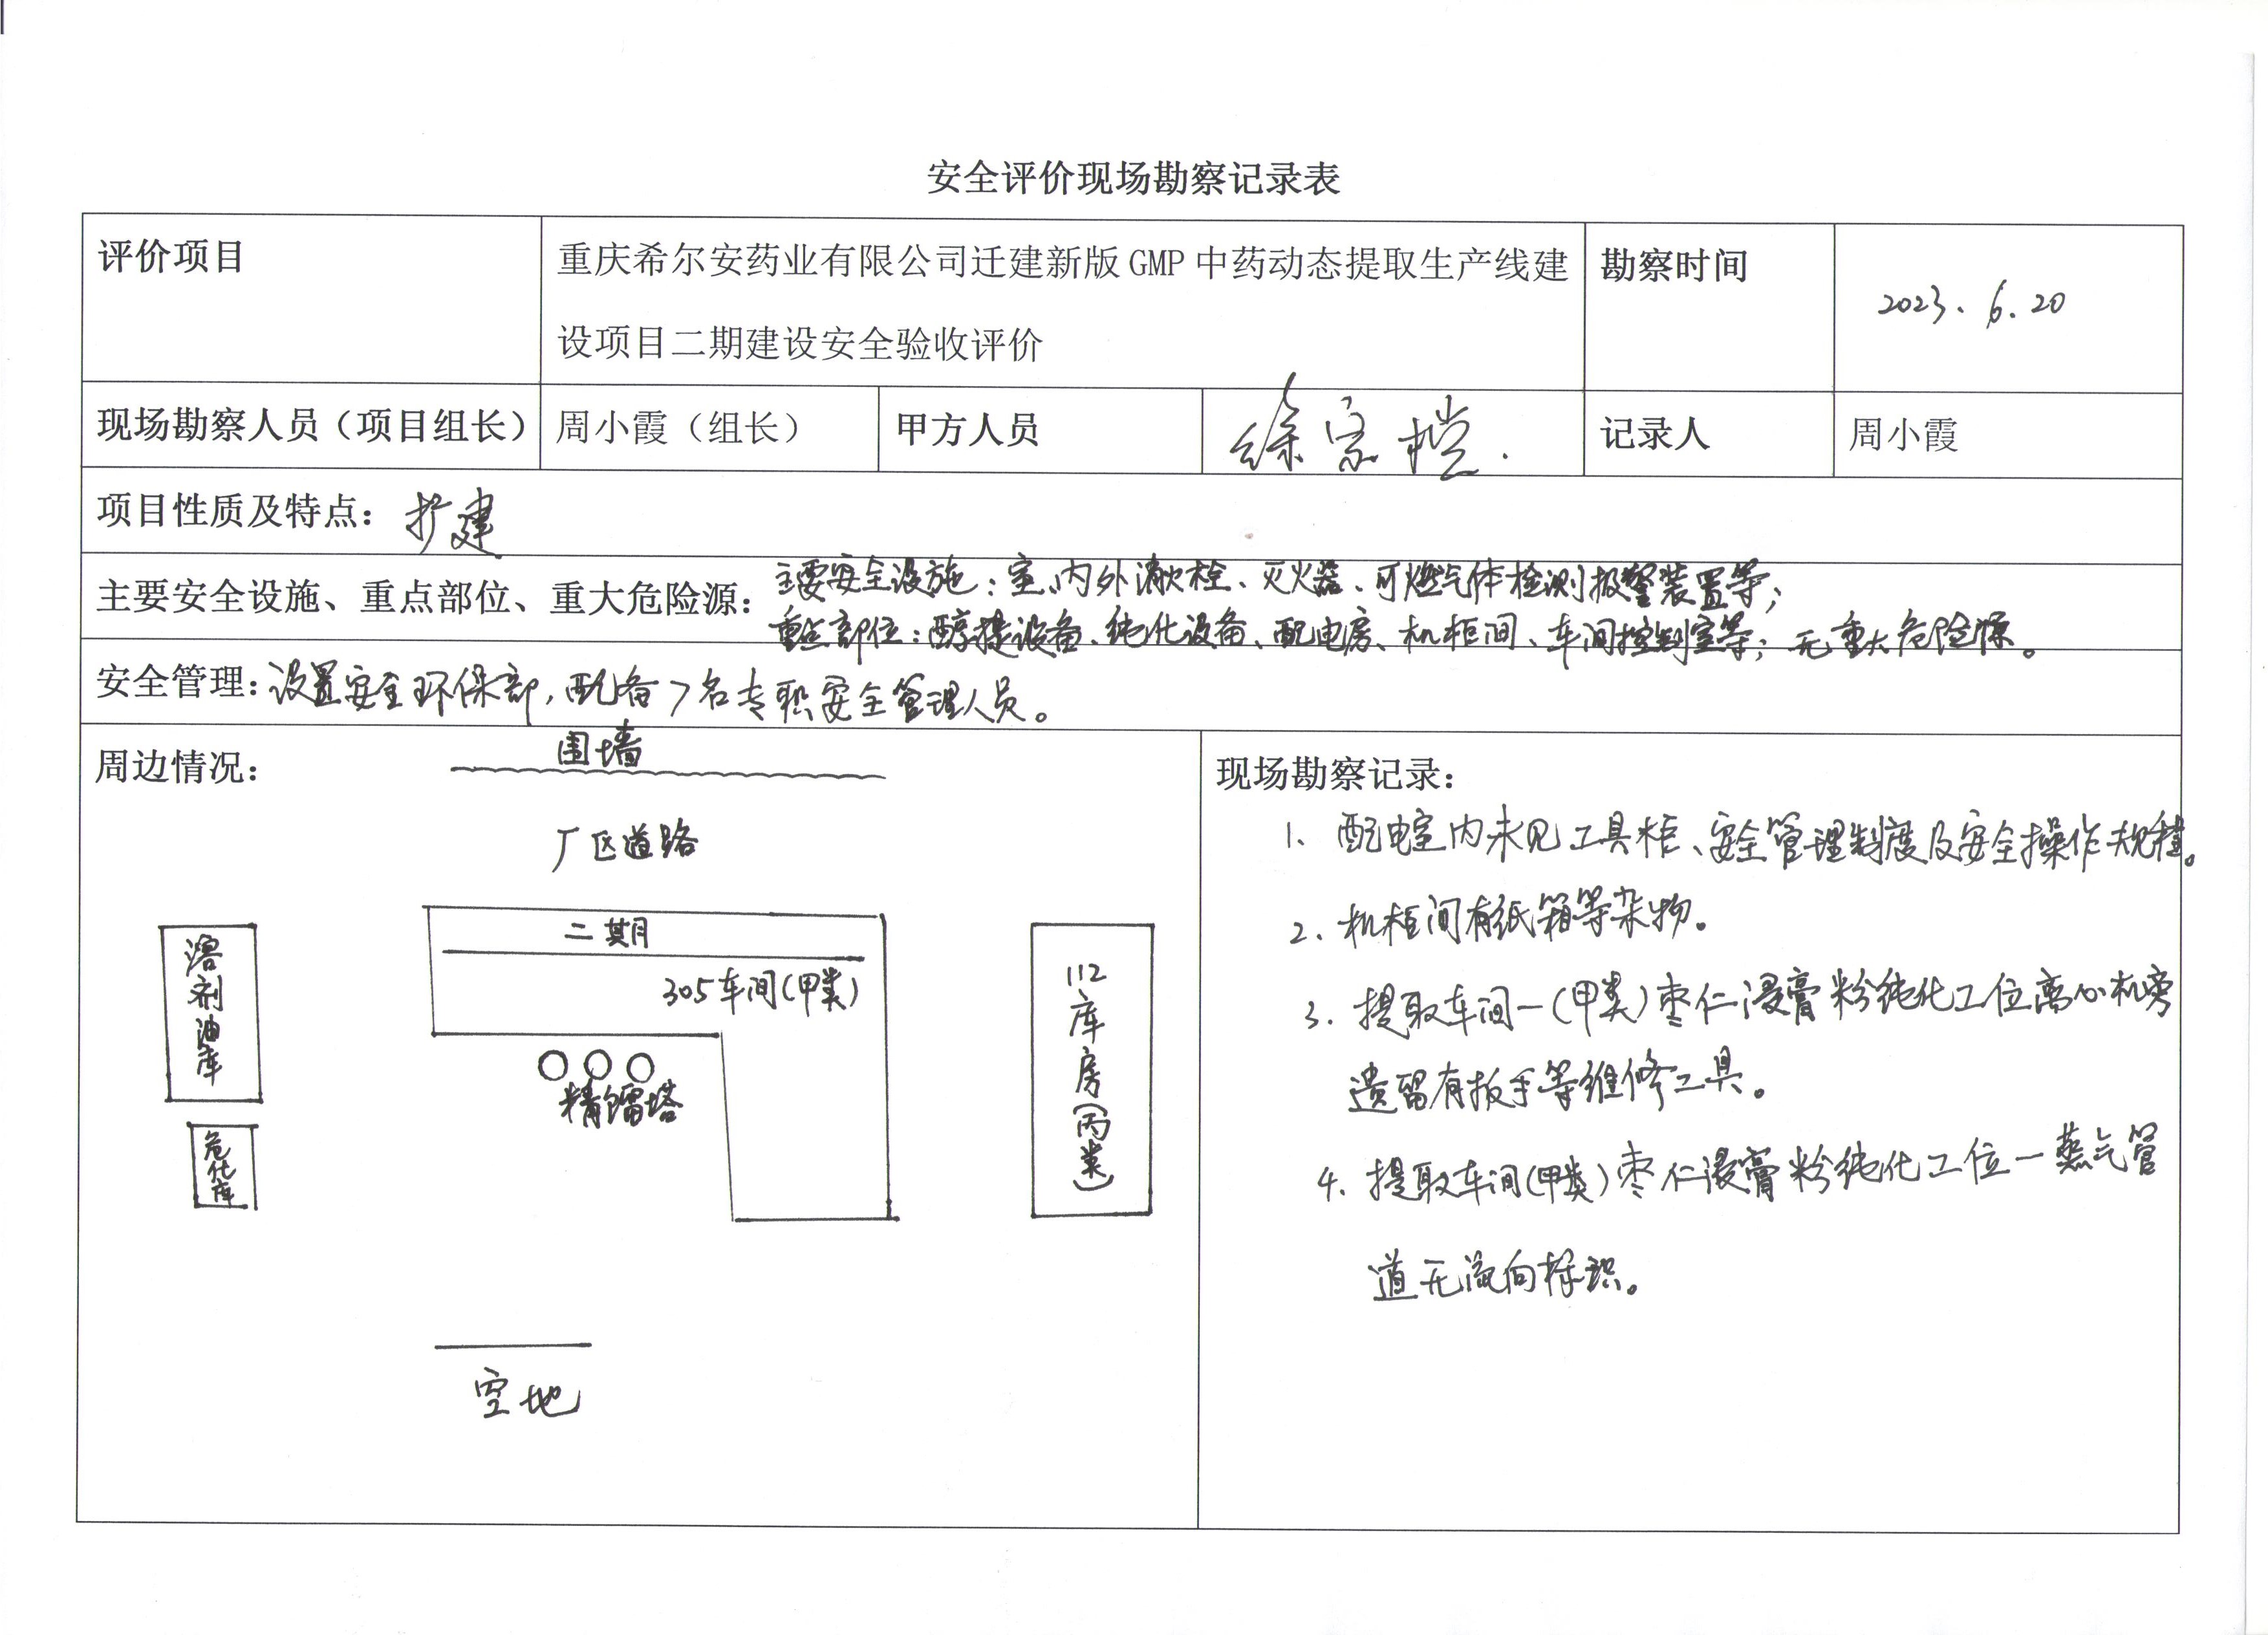 安全评价现场勘察记录表
评价项目
重庆希尔安药业有限公司迁建新版 GMP 中药动态提取生产线建
设项目二期建设安全验收评价
勘察时间
2023.6.20
现场勘察人员（项目组长）
周小霞（组长）
甲方人员
徐宗
记录人
周小霞
项目性质及特点：扩建
主要安全设施、重点部位、重大危险源：
主要安全设施：室内外消火栓、灭火器、可燃气体检测报警装置等；
重点部位：醇提设备、纯化设备、配电房、机柜间、车间控制室等；无重大危险源。
安全管理：设置安全环保部，配备7名专职安全管理人员。
周边情况：
围墙
厂区道路
二期
305车间（甲类）
精馏塔
溶剂油库
危化库
112库房（丙类）
空地
现场勘察记录：
1、配电室内未见工具柜、安全管理制度及安全操作规程。
2、机柜间有纸箱等杂物。
3、提取车间一（甲类）枣仁浸膏粉纯化工位离心机旁
遗留有扳手等维修工具。
4、提取车间（甲类）枣仁浸膏粉纯化工位一蒸气管
道无流向标识。